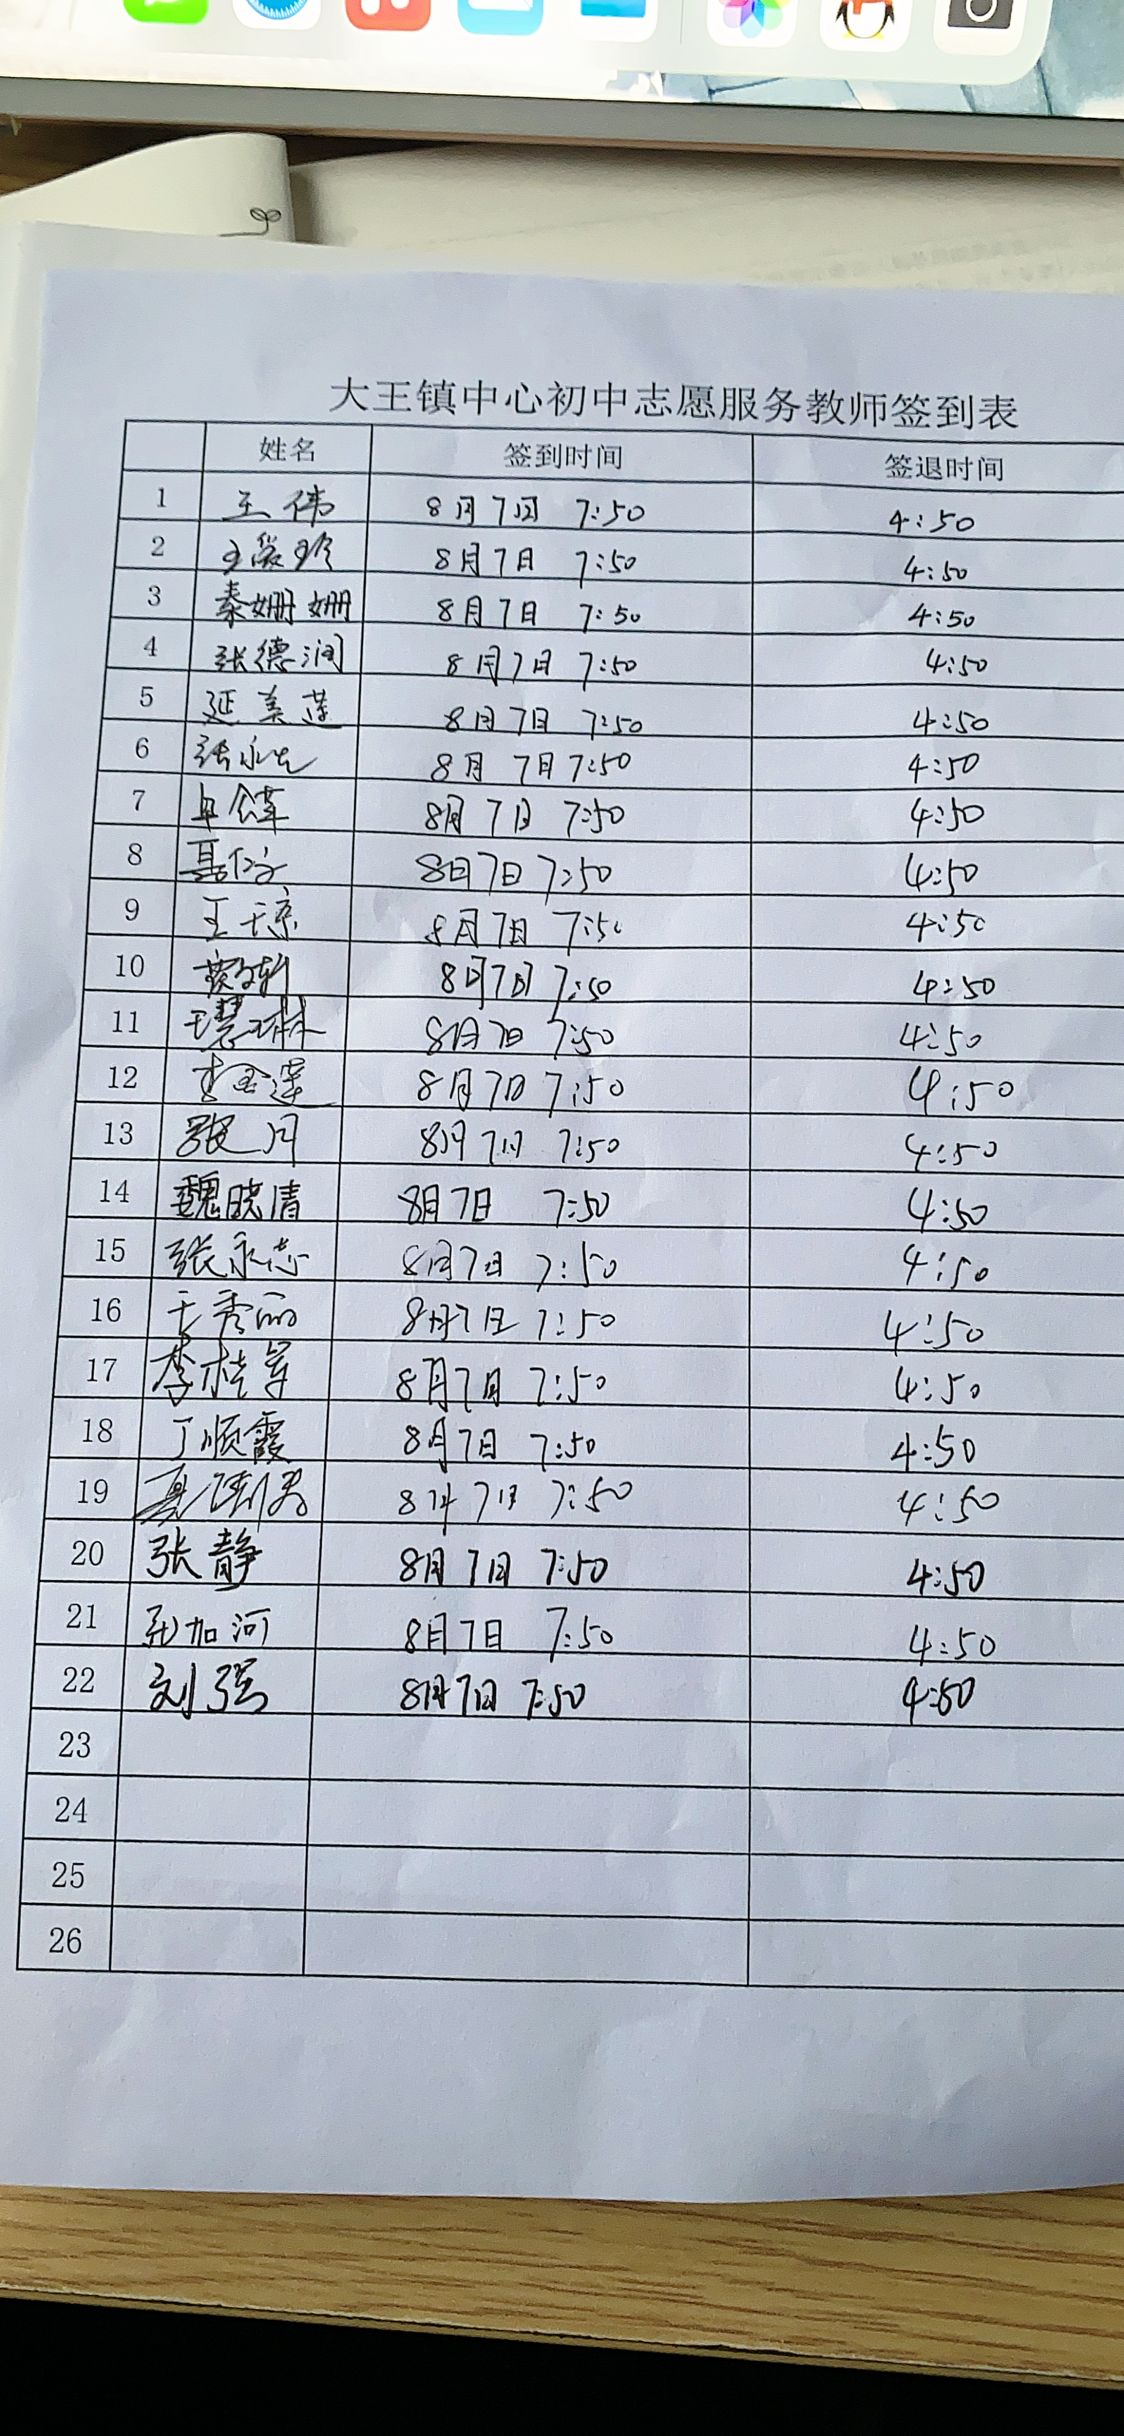 大王镇中心初中志愿服务教师签到表
姓名 签到时间 签退时间
1 王伟 8月7日 7:50 4:50
2 8月7日 7:50 4:50
3 秦姗姗 8月7日 7:50 4:50
4 张德润 8月7日 7:50 4:50
5 延美莲 8月7日 7:50 4:50
6 张永先 8月7日 7:50 4:50
7 8月7日 7:50 4:50
8 8月7日 7:50 4:50
9 8月7日 7:50 4:50
10 8月7日 7:50 4:50
11 8月7日 7:50 4:50
12 李金莲 8月7日 7:50 4:50
13 张月 8月7日 7:50 4:50
14 魏晓清 8月7日 7:50 4:50
15 张永志 8月7日 7:50 4:50
16 王秀丽 8月7日 7:50 4:50
17 李桂军 8月7日 7:50 4:50
18 丁顺霞 8月7日 7:50 4:50
19 8月7日 7:50 4:50
20 张静 8月7日 7:50 4:50
21 加河 8月7日 7:50 4:50
22 刘强 8月7日 7:50 4:50
23
24
25
26